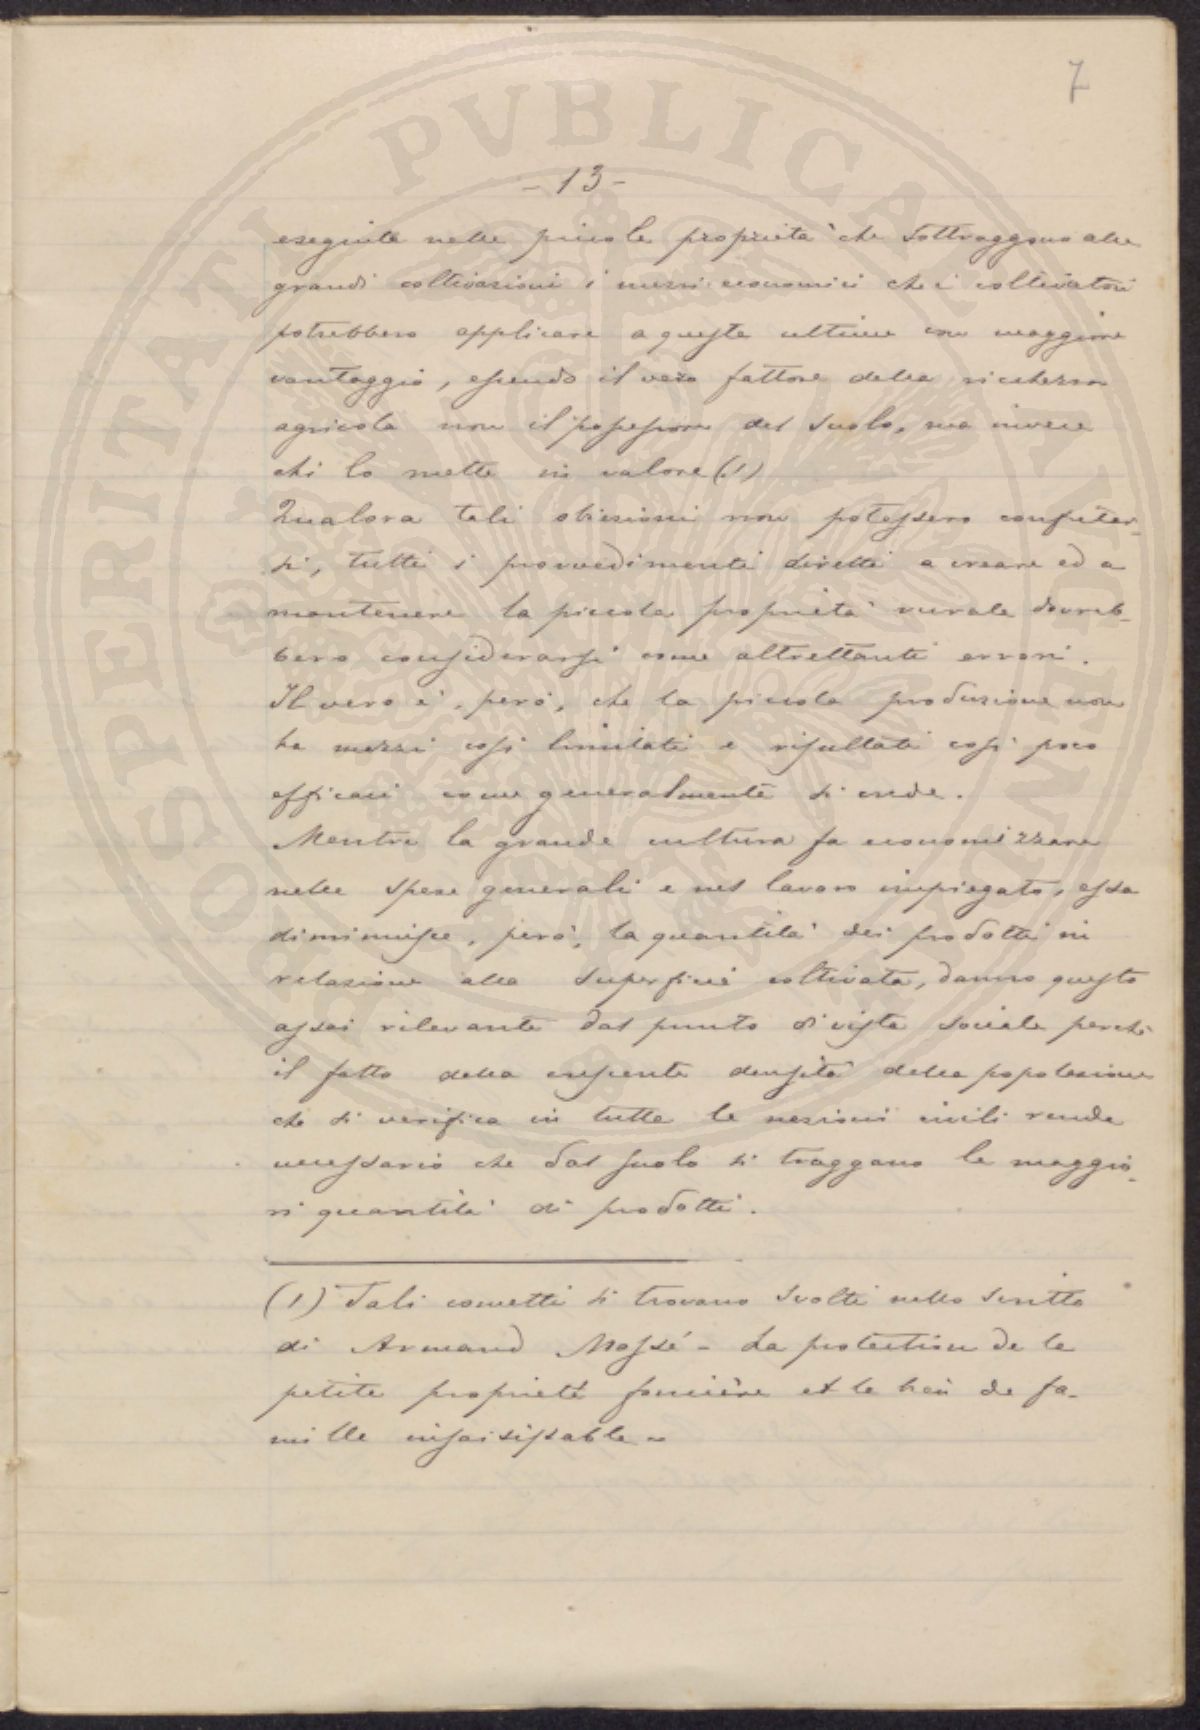 7
- 13 -
eseguite nelle piccole proprietà che sottraggono alle
grandi coltivazioni i mezzi economici che i coltivatori
potrebbero applicare a queste ultime con maggiore
vantaggio, essendo il vero fattore della ricchezza
agricola non il possessore del suolo, ma invece
chi lo mette in valore (1)
Qualora tali obiezioni non potessero confutar-
si, tutti i provvedimenti diretti a creare ed a
mantenere la piccola proprietà rurale dovreb-
bero considerarsi come altrettanti errori.
Il vero è, però, che la piccola produzione non
ha mezzi così limitati e risultati così poco
efficaci come generalmente si crede.
Mentre la grande cultura fa economizzare
nelle spese generali e nel lavoro impiegato, essa
diminuisce, però, la quantità dei prodotti in
relazione alla superficie coltivata, danno questo
assai rilevante dal punto di vista sociale perchè
il fatto della crescente densità della popolazione
che si verifica in tutte le nazioni civili rende
necessario che dal suolo si traggano le maggio-
ri quantità di prodotti.
(1) Tali concetti si trovano svolti nello scritto
di Armand Massé - La protection de la
petite propriété foncière et le bien de fa-
mille insaisissable -
PROSPERITATI PVBLICAE